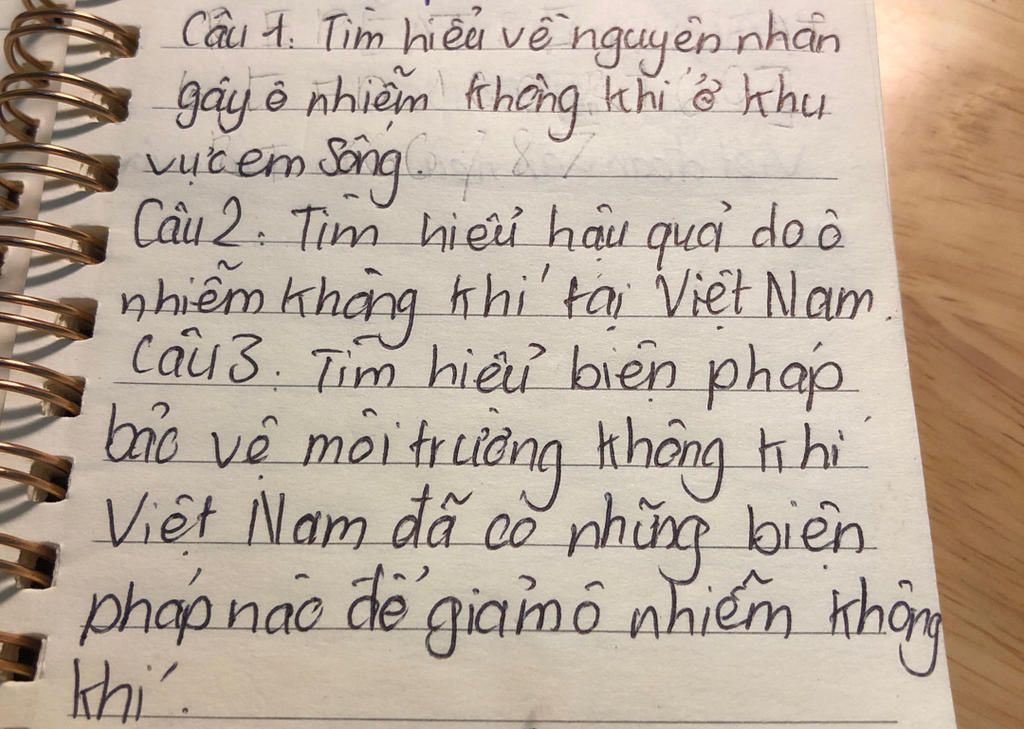 Câu 1. Tìm hiểu về nguyên nhân
gây ô nhiễm không khí ở khu
vực em sống.
Câu 2. Tìm hiểu hậu quả do ô
nhiễm không khí tại Việt Nam.
Câu 3. Tìm hiểu biện pháp
bảo vệ môi trường không khí
Việt Nam đã có những biện
pháp nào để giảm ô nhiễm không
khí.